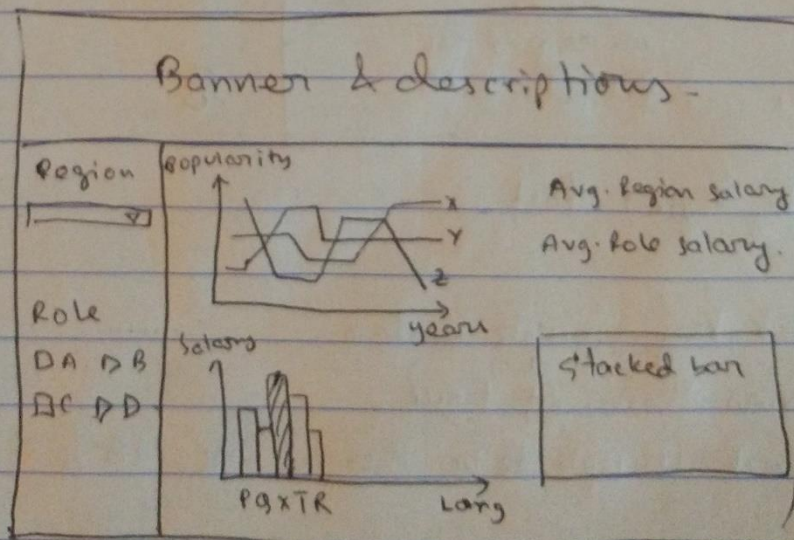 Banner & descriptions
Region
Popularity
X
Y
Z
years
Avg. Region Salary
Avg. Role Salary.
Role
A B
C D
Salary
P Q X T R
Lang
Stacked bar